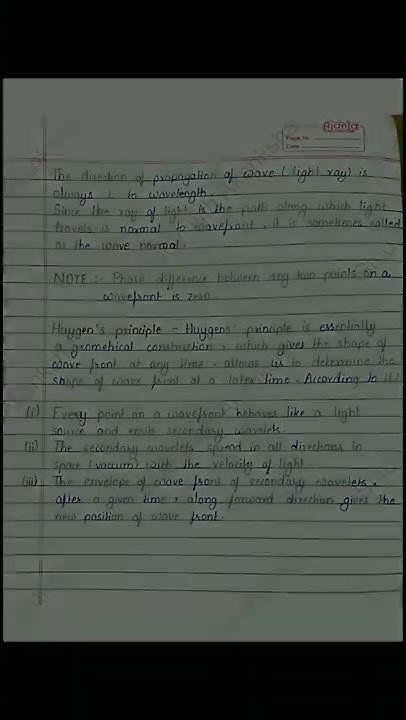 Ajanta
Page No.
Date
The direction of propagation of wave (light ray) is
always ⊥ to wavelength.
Since the ray of light is the path along which light
travels is normal to wavefront, it is sometimes called
as the wave normal.
NOTE :- Phase difference between any two points on a
wavefront is zero.
Huygen's principle - Huygens' principle is essentially
a geometrical construction, which gives the shape of
wave front at any time, allows us to determine the
shape of wave front at a later time. According to it:
(i) Every point on a wavefront behaves like a light
source and emits secondary wavelets.
(ii) The secondary wavelets spread in all directions in
space (vacuum) with the velocity of light.
(iii) The envelope of wave front of secondary wavelets,
after a given time, along forward direction gives the
new position of wave front.